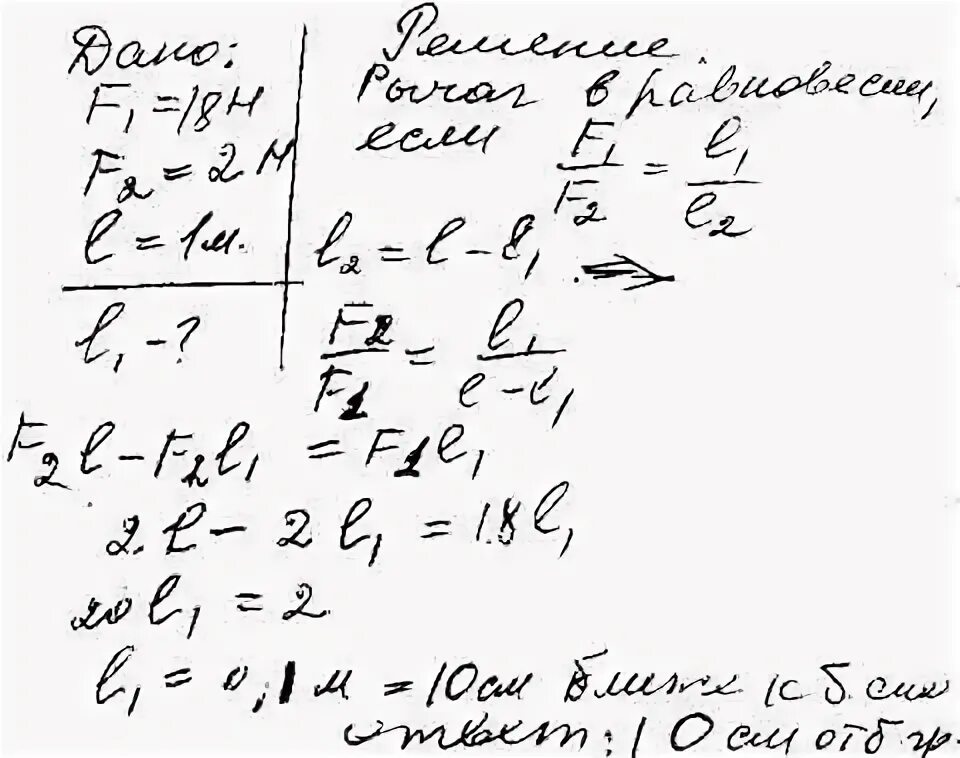 Дано:
F₁ = 18 Н
F₂ = 2 Н
l = 1 м.
l₁ - ?
Решение
Рычаг в равновесии,
если F₁/F₂ = l₁/l₂
l₂ = l - l₁ ⇒
F₂/F₁ = l₁/(l - l₁)
F₂l - F₂l₁ = F₁l₁
2·l - 2l₁ = 18l₁
20l₁ = 2
l₁ = 0,1 м = 10 см ближе к б. силе
ответ: 10 см от б. гр.